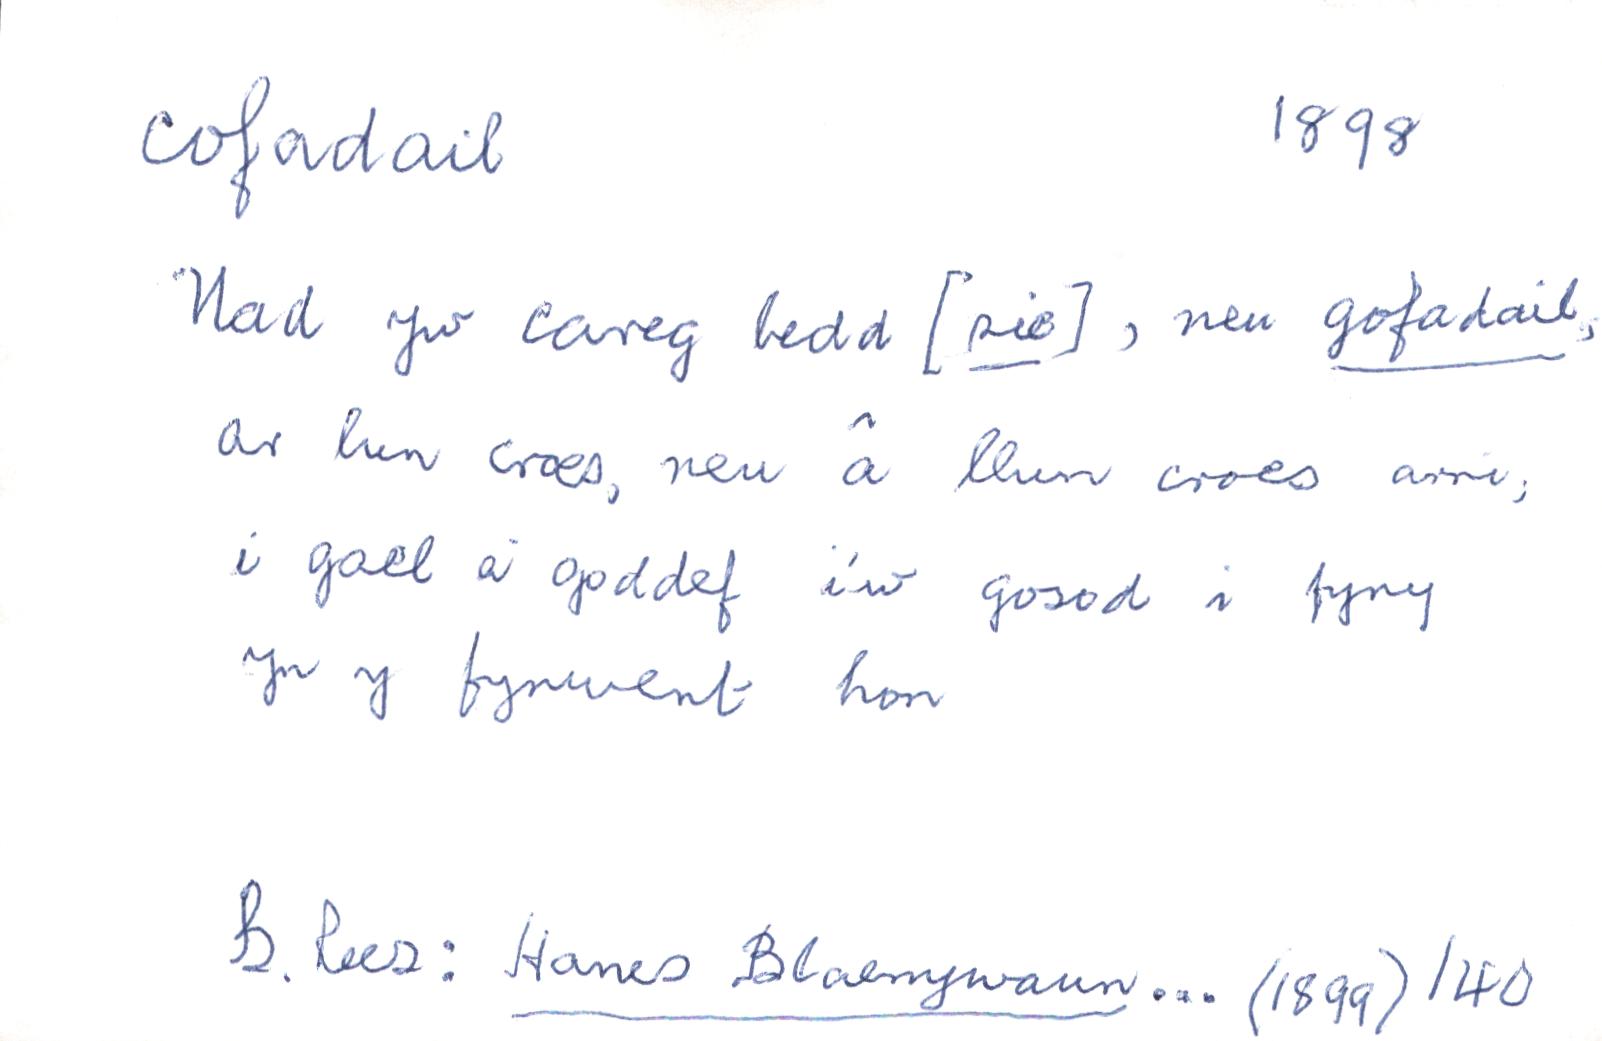 cofadail 1898
Nad yw careg bedd [sic], neu gofadail,
ar lun croes, neu â llun croes arni,
i gael ei goddef i'w gosod i fyny
yn y fynwent hon
B. Rees: Hanes Blaenywaun... (1899) 140